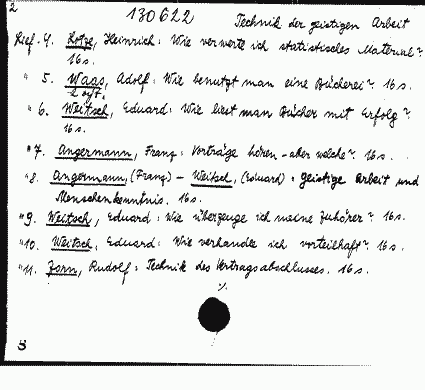 2
130622
Technik der geistigen Arbeit
Lief. 4. Lotze, Heinrich: Wie verwerte ich statistisches Material?
16 s.
" 5. Waas, Adolf: Wie benutzt man eine Bücherei? 16 s.
" 6. Weitsch, Eduard: Wie liest man Bücher mit Erfolg?
16 s.
" 7. Angermann, Franz: Vorträge hören - aber welche? 16 s.
" 8. Angermann, (Franz) - Weitsch, (Eduard): Geistige Arbeit und
Menschenkenntnis. 16 s.
" 9. Weitsch, Eduard: Wie überzeuge ich meine Zuhörer? 16 s.
" 10. Weitsch, Eduard: Wie verhandle ich vorteilhaft? 16 s.
" 11. Zorn, Rudolf: Technik des Vertragsabschlusses. 16 s.